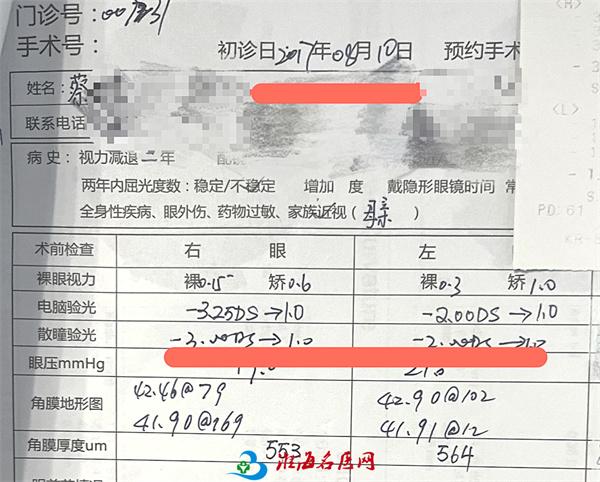 门诊号：00731
手术号：
初诊日2017年08月10日 预约手术
姓名：蔡
联系电话
病 史：视力减退二年
两年内屈光度数：稳定/不稳定 增加 度 戴隐形眼镜时间 常
全身性疾病、眼外伤、药物过敏、家族近视（
PD:61
术前检查 右 眼 左
裸眼视力 裸0.15 矫0.6 裸0.3 矫1.0
电脑验光 -3.25DS→1.0 -2.00DS→1.0
散瞳验光 -3.00DS→1.0 -2.00DS→1.0
眼压mmHg
角膜地形图 42.46@79 42.90@102
41.90@169 41.91@12
角膜厚度um 553 564
淮海名医网